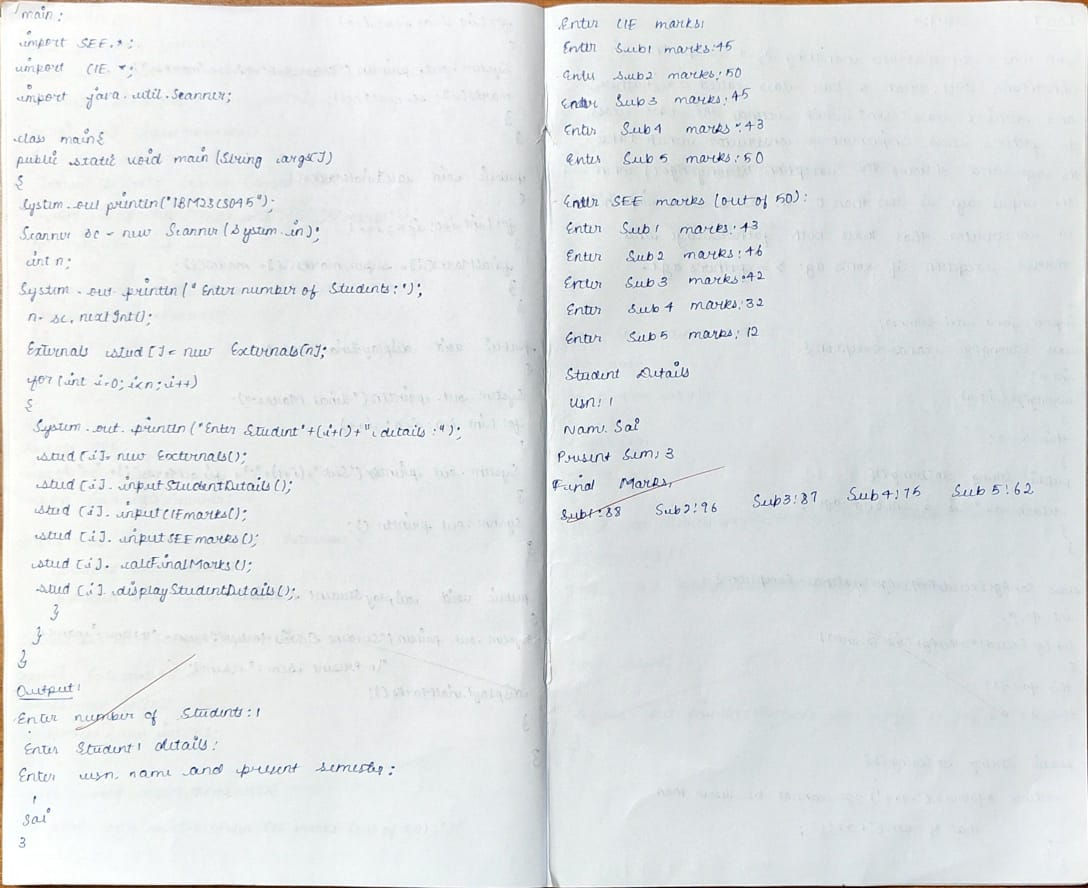 main:
import SEE.*;
import CIE.*;
import java.util.Scanner;
class main{
public static void main (String args[])
{
System.out println("1BM23CS045");
Scanner sc = new Scanner (System.in);
int n;
System.out.println("Enter number of Students:");
n= sc.nextInt();
Externals stud []= new Externals[n];
for (int i=0; i<n; i++)
{
System.out.println("Enter Student"+(i+1)+" details:");
stud [i]= new Externals();
stud [i]. inputStudentDetails();
stud [i]. inputCIEmarks();
stud [i]. inputSEEmarks();
stud [i]. calcFinalMarks();
stud [i]. displayStudentDetails();
}
}
}
Output:
Enter number of Students:1
Enter Student1 details:
Enter usn, name and present semester:
1
Sai
3
Enter CIE marks:
Enter Sub1 marks:45
Enter Sub2 marks:50
Enter Sub3 marks:45
Enter Sub4 marks:43
Enter Sub5 marks:50
Enter SEE marks (out of 50):
Enter Sub1 marks:43
Enter Sub2 marks:46
Enter Sub3 marks:42
Enter Sub4 marks:32
Enter Sub5 marks:12
Student Details
Usn:1
Nam: Sai
Present Sem:3
Final Marks:
Sub1:88 Sub2:96 Sub3:87 Sub4:75 Sub5:62